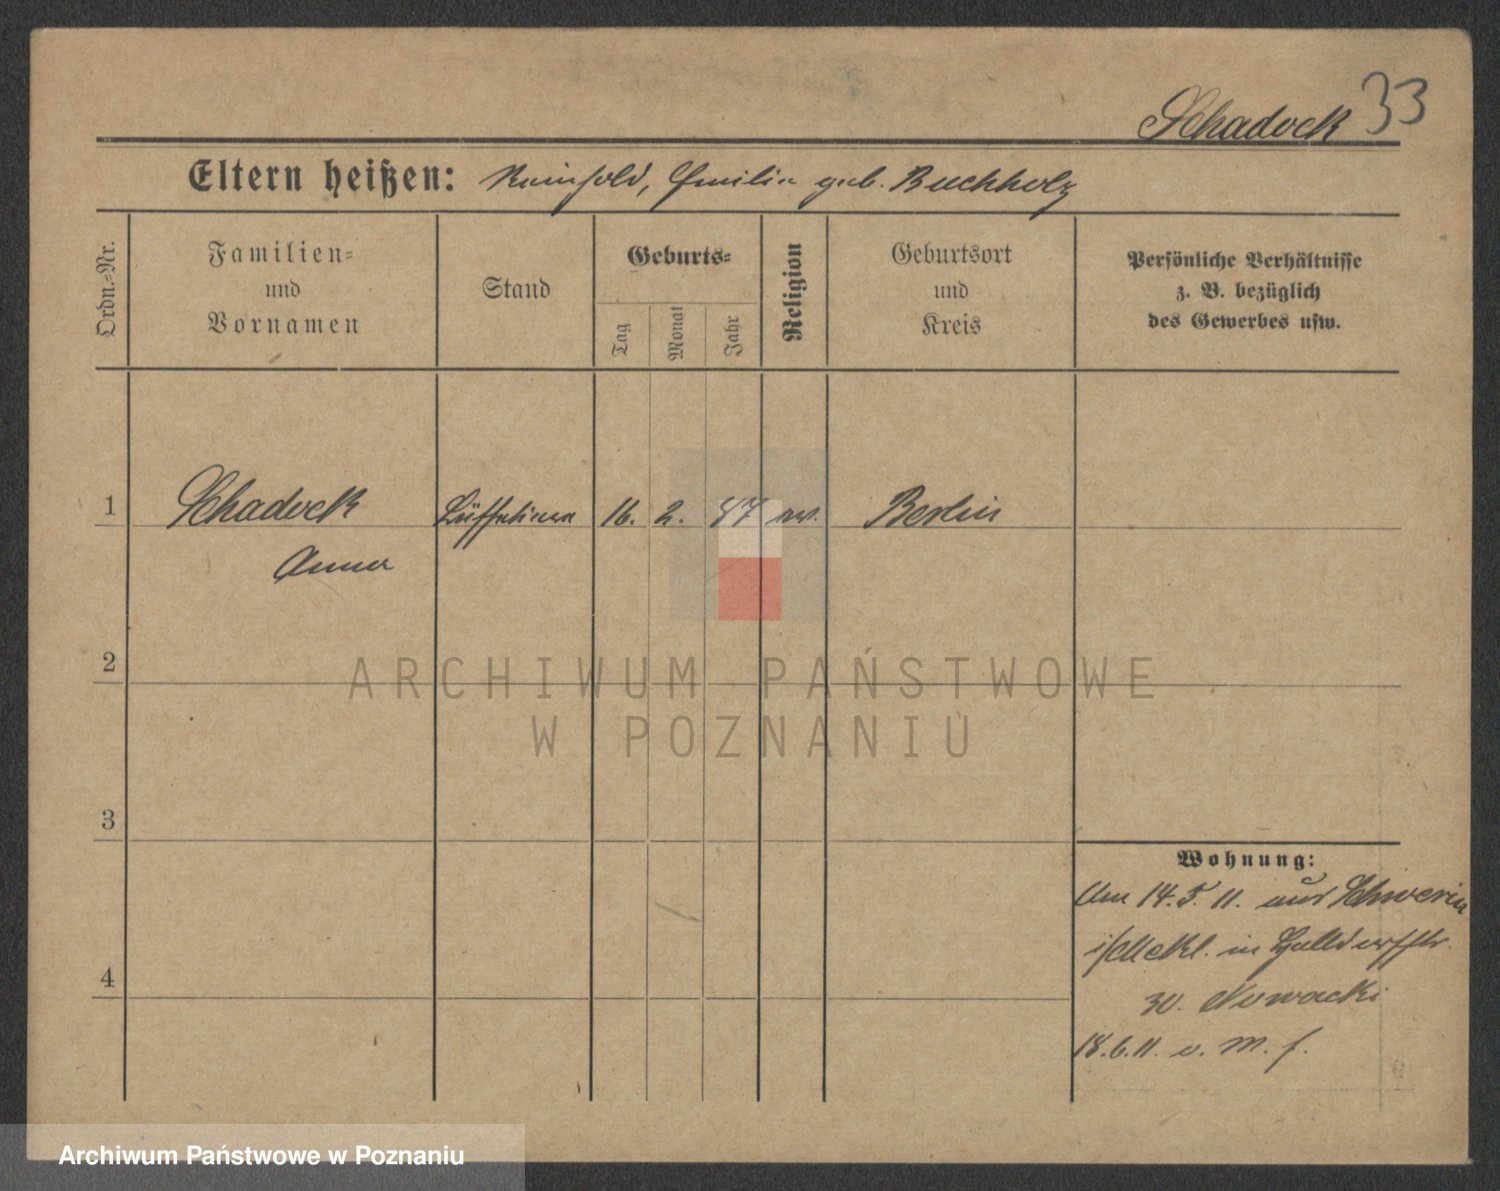 Schadock 33
Eltern heißen: Reinhold, Emilie geb. Buchholz
Ordn.-Nr.
Familien-
und
Vornamen
Stand
Geburts-
Tag
Monat
Jahr
Religion
Geburtsort
und
Kreis
Persönliche Verhältnisse
z. B. bezüglich
des Gewerbes usw.
1 Schadock 16. 2. ev. Berlin
Anna
2
3
4
Wohnung:
Am 14.5.11. aus Schwerin
i/Meckl. in
30. Nowacki
18.6.11. v. M. f.
ARCHIWUM PAŃSTWOWE
W POZNANIU
Archiwum Państwowe w Poznaniu